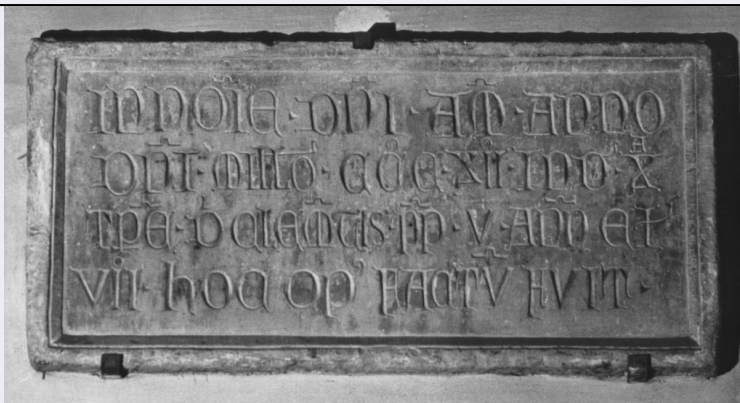 IN NOIE · DNI · AM · ANNO
DNI · MILLO · CCC · XII · IND · X
TPE · D CLEMTIS · PP · V · ANN EI'
VII · hOC OP' FACTV FVIT ·